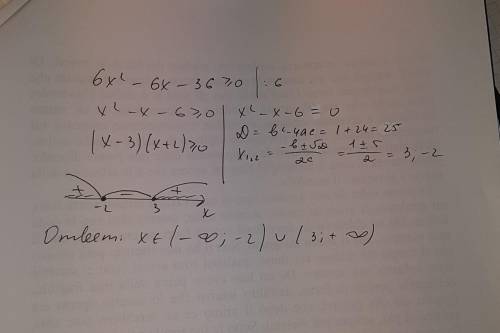 6x² - 6x - 36 ≥ 0 | : 6
x² - x - 6 ≥ 0
(x - 3)(x + 2) ≥ 0
x² - x - 6 = 0
D = b² - 4ac = 1 + 24 = 25
x₁,₂ = (-b ± √D)/2a = (1 ± 5)/2 = 3, -2
+ - +
-2 3 x
Ответ: x ∈ (-∞; -2) ∪ (3; +∞)